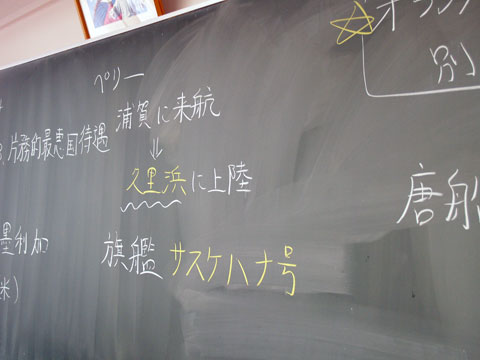 ペリー
浦賀に来航
⇓
久里浜に上陸
旗艦 サスケハナ号
片務的最恵国待遇
墨利加
米)
別
唐船